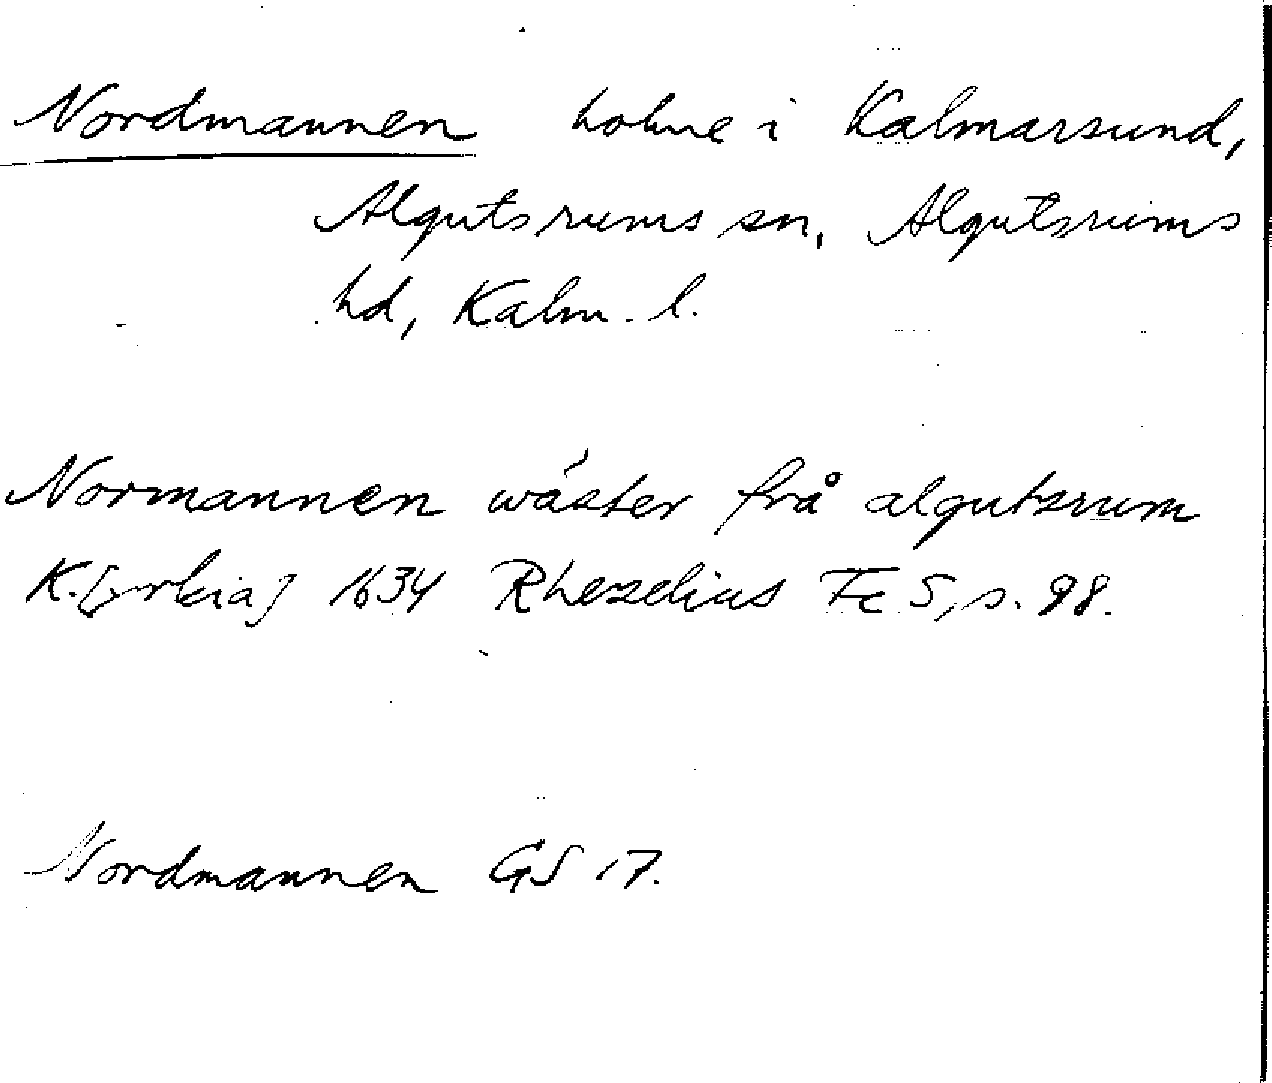 Nordmannen holme i Kalmarsund,
Algutsrums sn, Algutsrums
hd, Kalm. l.
Normannen wäster från algutsrum
K.[yrkia] 1634 Rhezelius Fc 5, s. 98.
Nordmannen GS 17.